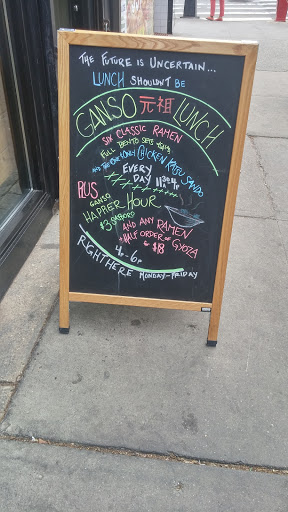 THE FUTURE IS UNCERTAIN...
LUNCH SHOULDN'T BE
GANSO 元祖 LUNCH
SIX CLASSIC RAMEN
FULL BENTO SETS
AND THE ONE & ONLY CHICKEN KATSU SANDO
EVERY
DAY
PLUS
GANSO
HAPPIER HOUR
$3 SAPPORO
AND ANY RAMEN
+ HALF ORDER OF GYOZA
$18
4P-6P
RIGHT HERE MONDAY-FRIDAY